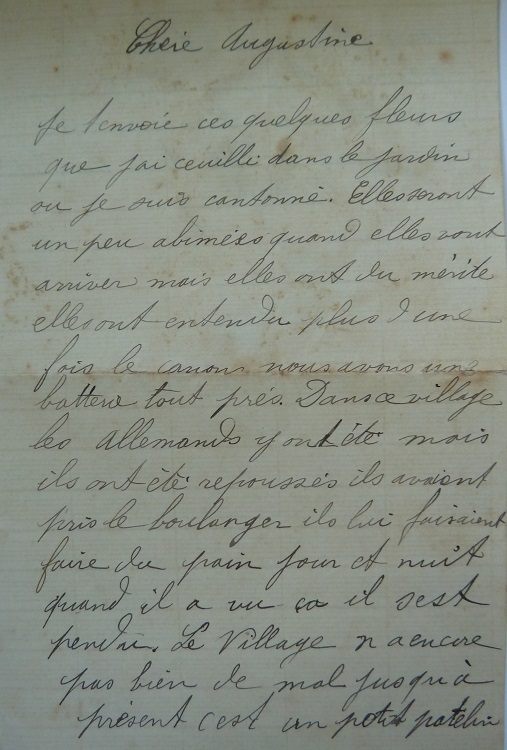 Cheie Augustine
Je t'envoie ces quelques fleurs
que j'ai ceuilli dans le jardin
ou je suis cantonné. Elles seront
un peu abimées quand elles vont
arriver mais elles ont du mérite
elles ont entendu plus d'une
fois le canon nous avons une
batterie tout prés. Dans ce village
les Allemands y ont été mais
ils ont été repoussés ils avaient
pris le boulanger ils lui faisaient
faire du pain jour et nuit
quand il a vu ça il sest
pendu. Le Village n a encore
pas bien de mal jusqu'à
présent c'est un petit patelin